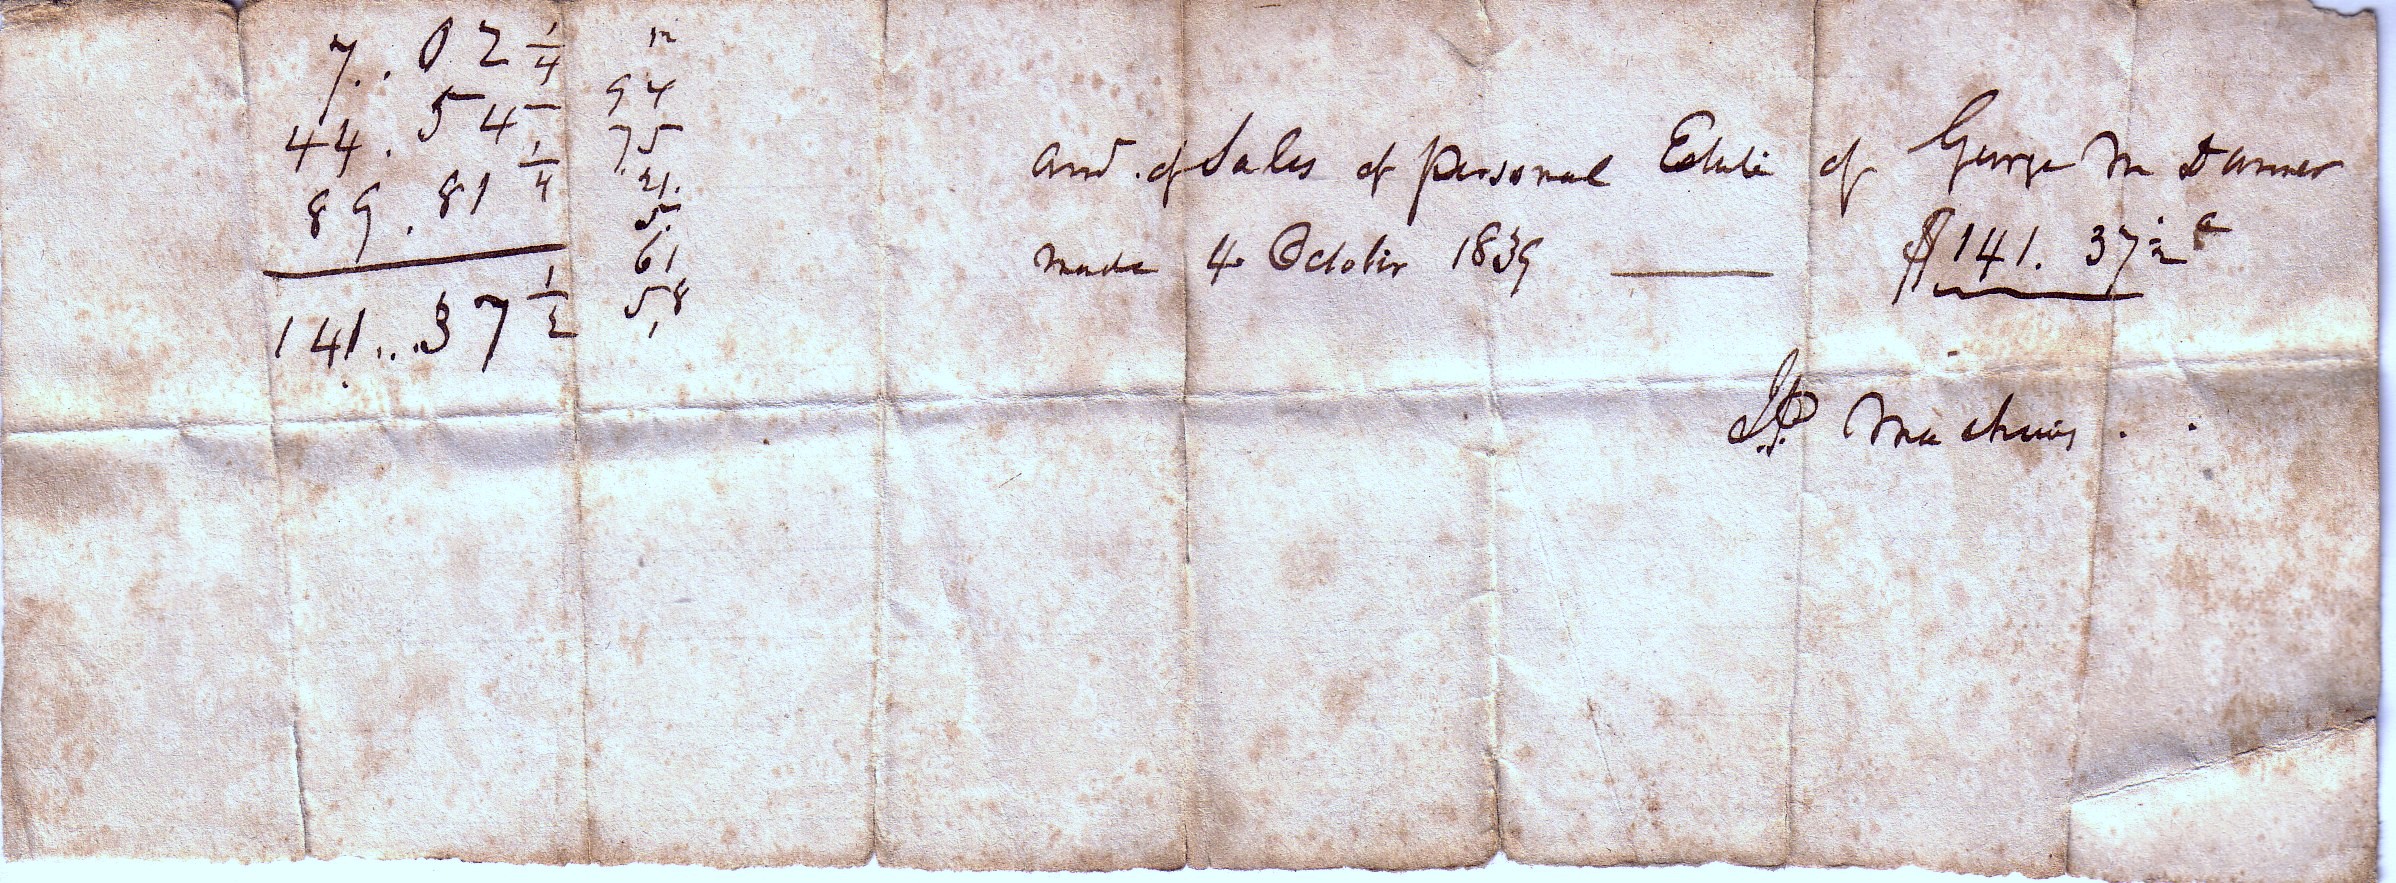 7..02 1/4
44.54 -
89.81 1/4
141...37 1/2
12
94
75
21.
5.
61
58
1
Amt. of Sales of personal Estate of George M Danner
made 4 October 1839 — $141.37 1/2 c
JP